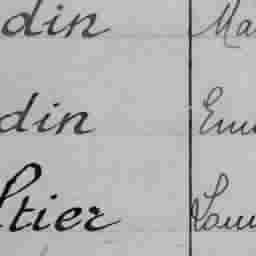 din Ma
din Em
ltier Lou